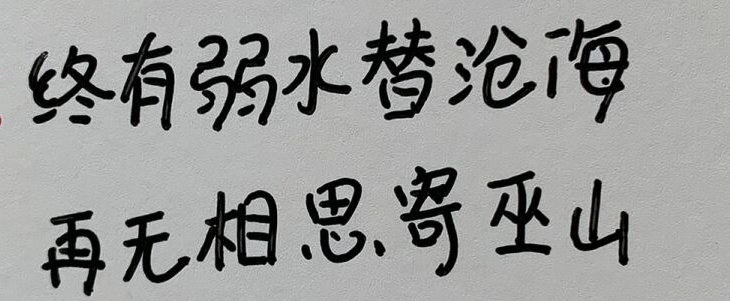 终有弱水替沧海
再无相思寄巫山